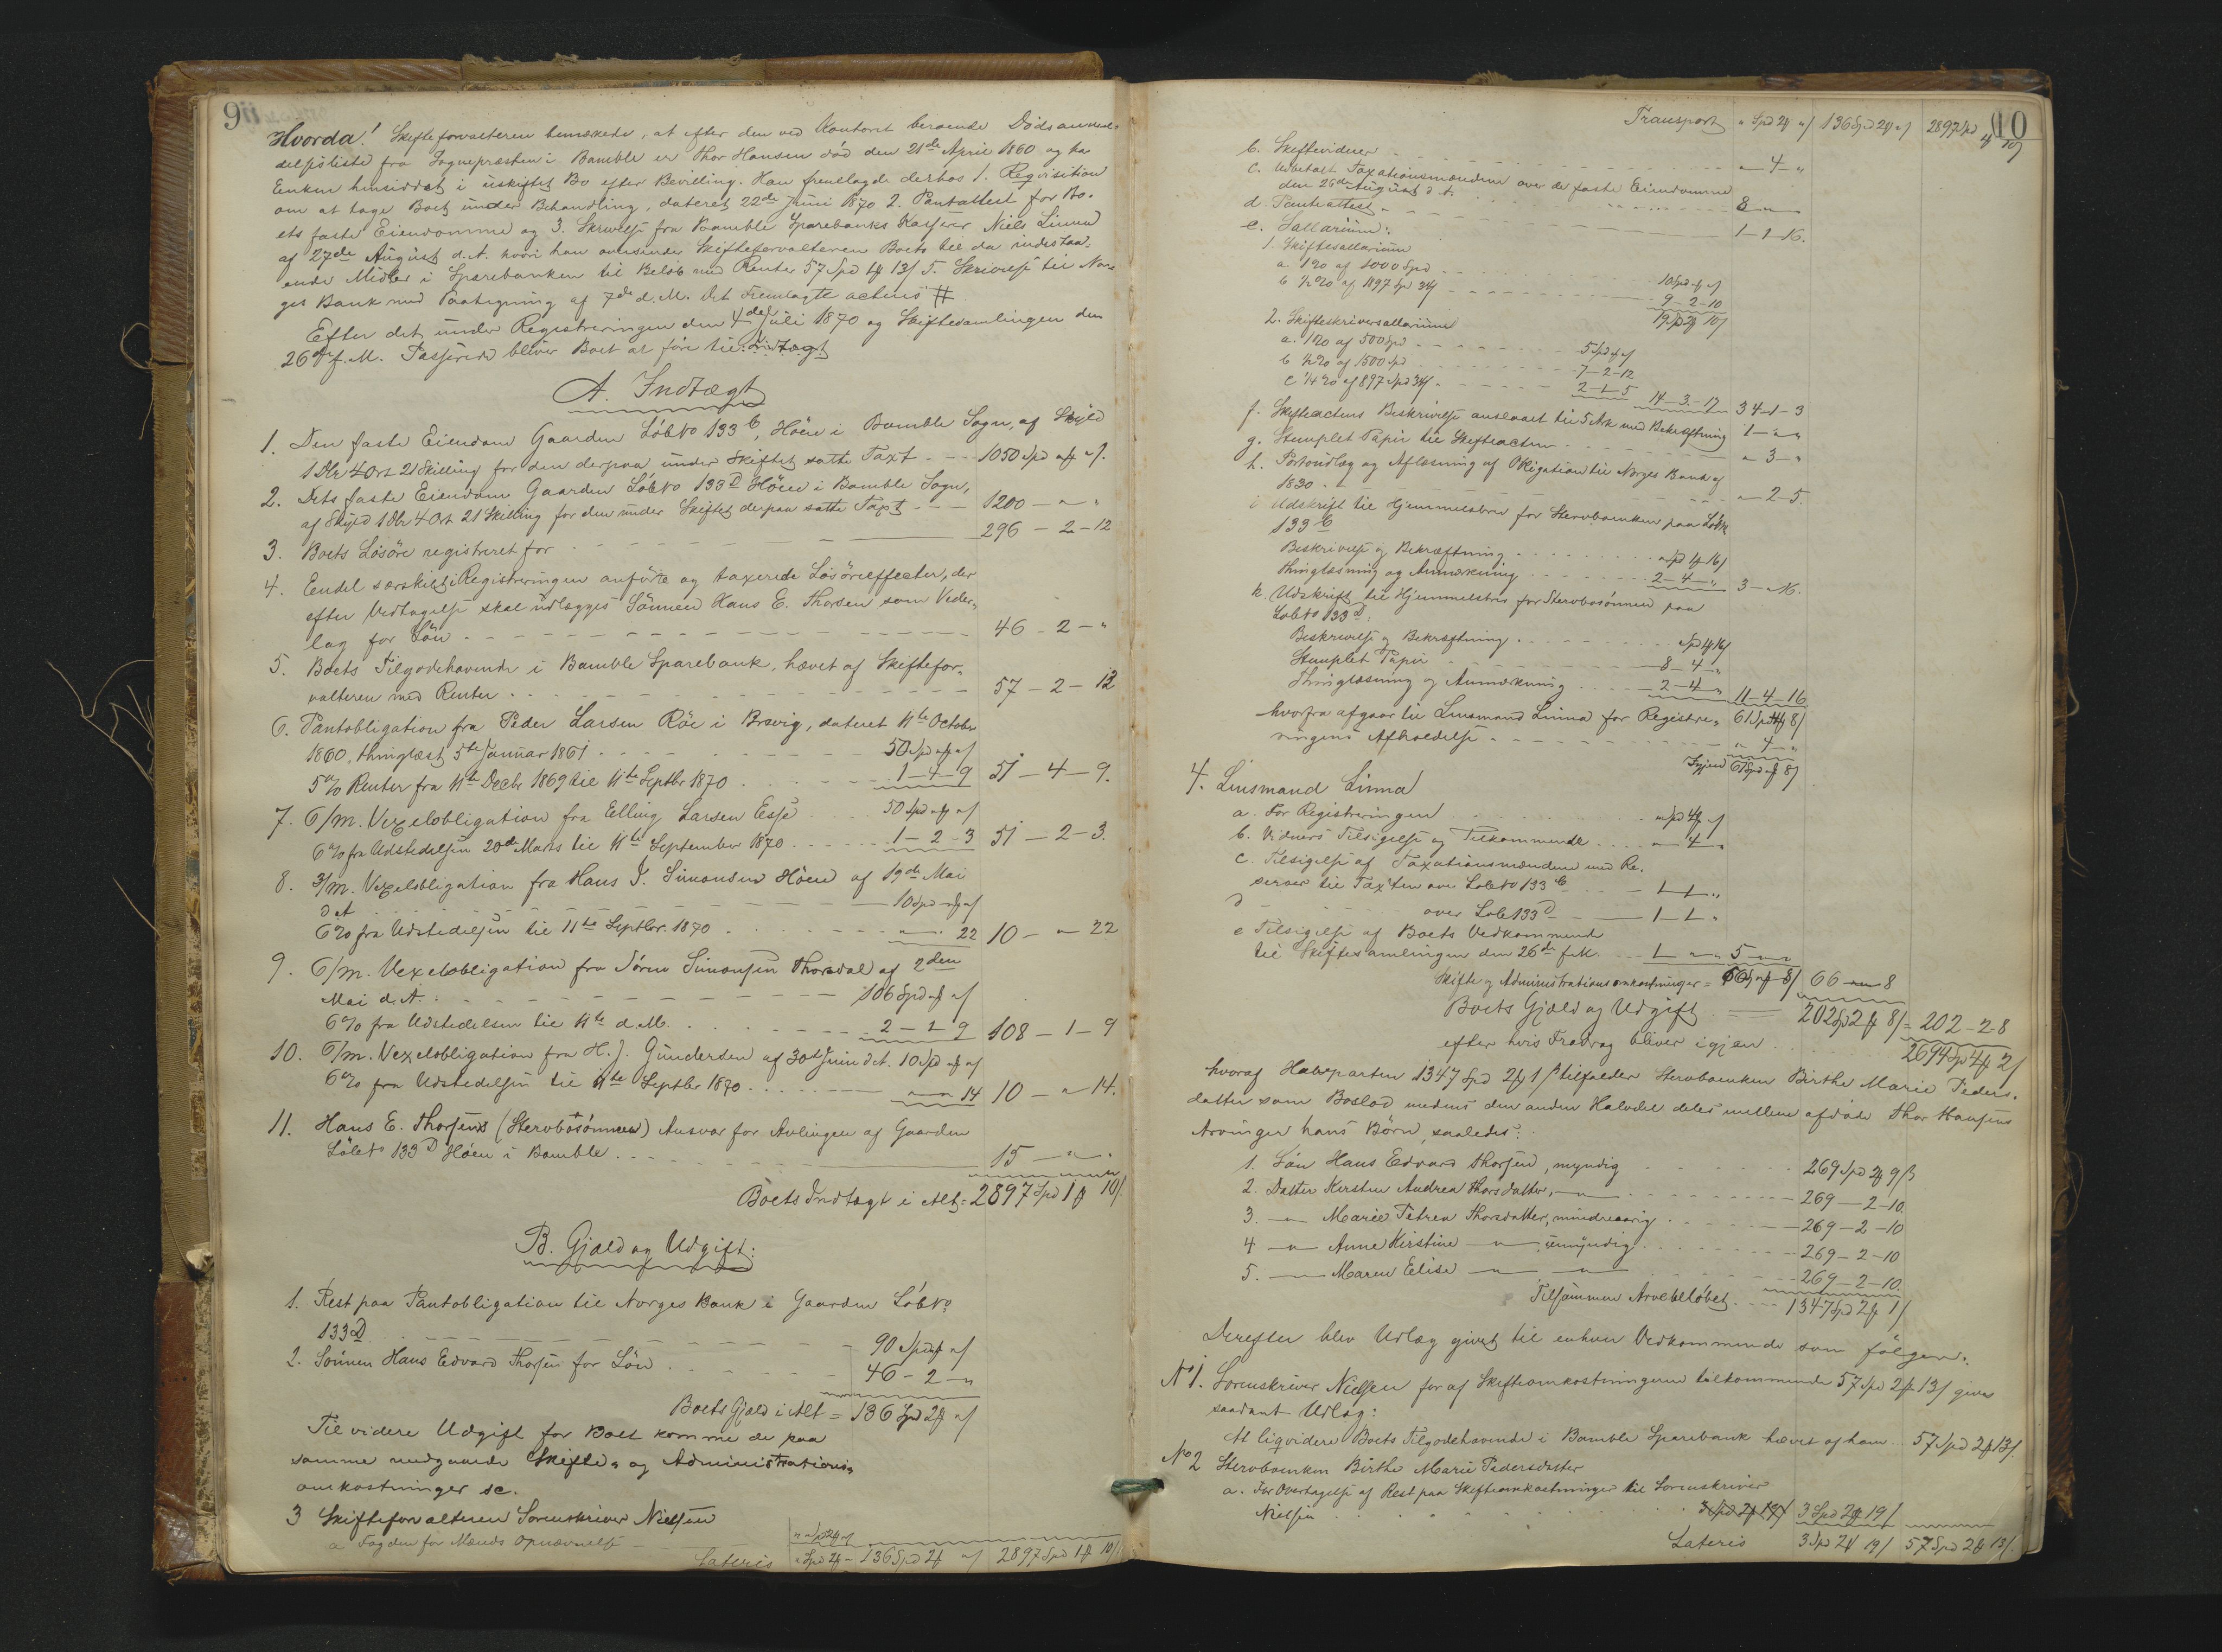 9
Hvorda! Skifteforvalteren bemærkede, at efter den ved Kontoret beroende Dødsanmel-
delsesliste fra Sognepræsten i Bamble er Thor Hansen død den 21de April 1860 og har
Enken hensiddet i uskiftet Bo efter Bevilling. Han fremlagde derhos 1. Reqvisition
om at tage Boet under Behandling, dateret 22de Juni 1870 2. Pantattest for Bo-
ets faste Eiendomme og 3. Skrivelse fra Bamble Sparebanks Kasserer Niels Linna
af 27de August d. A. hvori han oversender Skifteforvalteren Boets til da indestaa-
ende Midler i Sparebanken til Beløb med Renter 57 Spd 2 ƒ 13 ß 5. Skrivelse til Nor-
ges Bank med Paategning af 7de d. M. Det Fremlagte acteres #
Efter det under Registreringen den 4de Juli 1870 og Skiftesamlingen den
26de f. M. Passerede bliver Boet at føre til Indtægt
A. Indtægt
1. Den faste Eiendom Gaarden Løbno 133 b, Höen i Bamble Sogn, af Skyld
1 Dlr 4 Ort 21 Skilling for den derpaa under Skiftet satte Taxt - - - 1050 Spd " ƒ " ß.
2. Dets faste Eiendom Gaarden Løbno 133 D Höen i Bamble Sogn,
af Skyld 1 Dlr 4 Ort 21 Skilling for den under Skiftet derpaa satte Taxt - - - 1200 - " - "
3. Boets Løsøre registreret for - - - 296 - 2 - 12
4. Endel særskilt i Registreringen anførte og taxerede Løsøreeffecter, der
efter Vedtagelse skal udlægges Sønnen Hans E. Thorsen som Veder-
lag for Løn - - - 46 - 2 - "
5. Boets Tilgodehavende i Bamble Sparebank, hævet af Skiftefor-
valteren med Renter - - - 57 - 2 - 13
6. Pantobligation fra Peder Larsen Röe i Brevig, dateret 11te October
1860, thinglæst 5te Januar 1861 - - - 50 Spd " ƒ " ß
5 % Renter fra 11te Decbr 1869 til 11te Septbr 1870 - - - 1 - 4 - 9 51 - 4 - 9.
7. 6/m. Vexelobligation fra Elling Larsen Esse - - - 50 Spd " ƒ " ß
6 % fra Udstedelsen 20de Marts til 11te September 1870 - - - 1 - 2 - 3 51 - 2 - 3.
8. 3/m. Vexelobligation fra Hans I. Simonsen Höen af 19de Mai
d. A. - - - 10 Spd " ƒ " ß
6 % fra Udstedelsen til 11te Septbr. 1870 - - - " - " 22 10 - " 22
9. 6/m. Vexelobligation fra Sören Simonsen Thorsdal af 2den
Mai d. A. : - - - 106 Spd " ƒ " ß
6 % fra Udstedelsen til 11te d. M. - - - 2 - 1 9 108 - 1 - 9
10. 6/m. Vexelobligation fra H. J. Gundersen af 30te Juni d. A. 10 Spd " ƒ " ß
6 % fra Udstedelsen til 11te Septbr 1870 - - - " - " 14 10 - " 14.
11. Hans E. Thorsens (Stervbosønnen) Ansvar for Avlingen af Gaarden
Løbno 133 D Höen i Bamble - - - 15 - " - "
Boets Indtægt i Alt = 2897 Spd 1 ƒ 10 ß.
B. Gjæld og Udgift:
1. Rest paa Pantobligation til Norges Bank i Gaarden Løbno
133 D - - - 90 Spd " ƒ " ß
2. Sønnen Hans Edvard Thorsen for Løn - - - 46 - 2 - "
Boets Gjæld i Alt = 136 Spd 2 ƒ " ß
Til videre Udgift for Boet komme de paa
samme medgaaede Skifte- og Administrations-
omkostninger sc.
3 Skifteforvalteren Sorenskriver Nielsen
a Fogden for Mænds Opnævnelse - " Spd 2 ƒ " ß
Lateris " Spd 2 ƒ - 136 Spd 2 ƒ " ß 2897 Spd 1 ƒ 10 ß.
10
Transport " Spd 2 ƒ " ß 136 Spd 2 ƒ " ß 2897 Spd 1 ƒ 10 ß
b. Skiftevidner - - - " 4 - "
c. Udbetalt Taxationsmændene over de faste Eiendomme
den 26de August d. A. - - - 8 - " - "
d. Panteattest - - - 1 - 1 - 16.
e. Sallarium:
1. Skiftesallarium
a. 1 % af 1000 Spd - - - 10 Spd " ƒ " ß
b ½ % af 1897 Spd 3 ƒ - - - 9 - 2 - 10
19 Spd 2 ƒ 10 ß
2. Skifteskriversallarium
a. 1 % af 500 Spd - - - 5 Spd " ƒ " ß
b ½ % af 1500 Spd - - - 7 - 2 - 12
c ¼ % af 897 Spd 3 ƒ - - - 2 - 1 - 5 14 - 3 - 17 34 - 1 - 3
f. Skifteactens Beskrivelse anslaaet til 5 Ark med Bekræftning 1 - " "
g. Stemplet Papir til Skifteacten - - - " 3 - "
h. Portoudlæg og Aflæsning af Obligation til Norges Bank af
1830 - - - " 2 - 5.
i Udskrift til Hjemmelsbrev for Stervboenken paa Løbno
133 b
Beskrivelse og Bekræftning - - - " Spd 1 ƒ 16 ß
Thinglæsning og Anmærkning - - - 2 - 4 - " 3 - " 16.
k. Udskrift til Hjemmelsbrev for Stervbosønnen paa
Løbno 133 D.
Beskrivelse og Bekræftning - - - " Spd 1 ƒ 16 ß
Stemplet Papir - - - 8 - 4 - "
Thinglæsning og Anmærkning - - - 2 - 4 - " 11 - 4 - 16
hvorfra afgaar til Lensmand Linna for Registre- 61 Spd 4 ƒ 8 ß
ringens Afholdelse - - - " 4 - "
Igjen 61 Spd " ƒ 8 ß
4. Lensmand Linna
a. For Registreringen - - - " Spd 4 ƒ " ß
b. Vidners Tilsigelse og Tilkommende - - - " 4 - "
c. Tilsigelse af Taxationsmændene med Re-
server til Taxten over Løbno 133 b - - - 1 - 1 - "
d over Løb 133 D - - - 1 - 1 - "
e Tilsigelse af Boets Vedkommende
til Skiftesamlingen den 26de f. M. - - - 1 - " - " 5 - " - "
Skifte og Administrationsomkostninger = 66 Spd " ƒ 8 ß 66 - " - 8
Boets Gjæld og Udgift - - - 202 Spd 2 ƒ 8 ß = 202 - 2 - 8
efter hvis Fradrag bliver igjen - - - 2694 Spd 4 ƒ 2 ß
hvoraf Halvparten 1347 Spd 2 ƒ 1 ß tilfalder Stervboenken Birthe Marie Peders-
datter som Boslod medens den anden Halvdel deles mellem afdøde Thor Hansens
Arvinger hans Børn, saaledes:
1. Søn Hans Edvard Thorsen, myndig - - - 269 Spd 2 ƒ 9 ß
2. Datter Kirsten Andrea Thorsdatter, - " - - - 269 - 2 - 10.
3. - " - Marie Petrea Thorsdatter, mindreaarig - - - 269 - 2 - 10
4 - " - Anne Kirstine - " - umyndig - - - 269 - 2 - 10
5. - " - Maren Elise - " - - " - - - - 269 - 2 - 10.
Tilsammen Arvebeløbet - - - 1347 Spd 2 ƒ 1 ß
Derefter blev Udlæg givet til enhver Vedkommende som følger:
No 1. Sorenskriver Nielsen for af Skifteomkostningerne tilkommende 57 Spd 2 ƒ 13 ß gives
saadant Udlæg:
At liqvidere Boets Tilgodehavende i Bamble Sparebank hævet af ham - 57 Spd 2 ƒ 13 ß.
No 2 Stervboenken Birthe Marie Pedersdatter
a. For Overtagelse af Rest paa Skifteomkostninger til Sorenskriver
Nielsen - - - 3 Spd 2 ƒ 19 ß 3 Spd 2 ƒ 19 ß
Lateris 3 Spd 2 ƒ 19 ß 57 Spd 2 ƒ 13 ß.